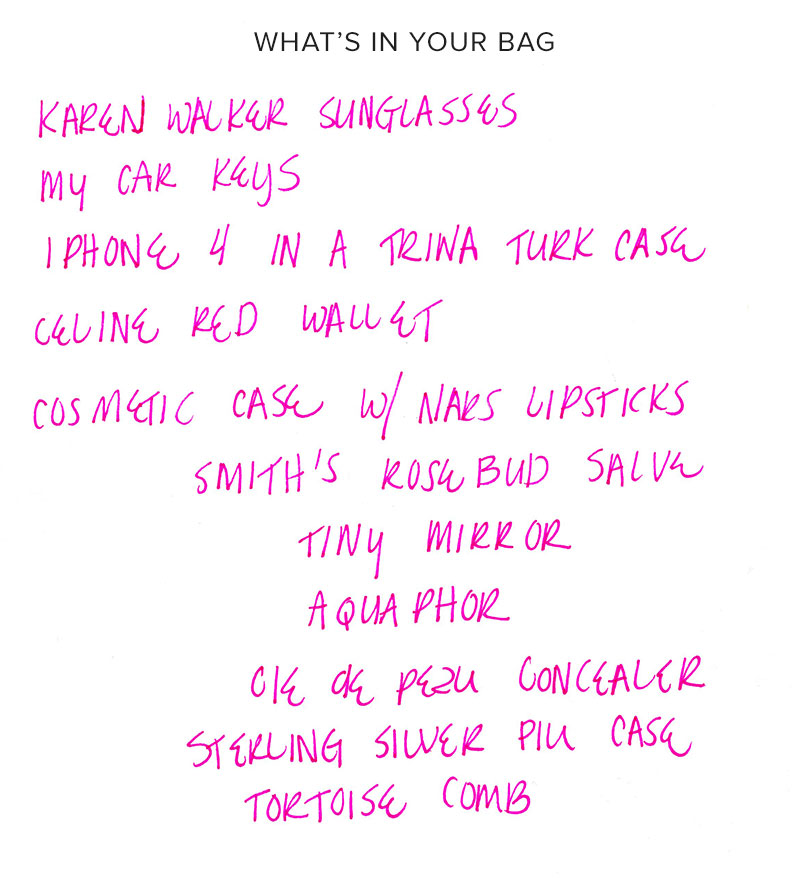 WHAT'S IN YOUR BAG
KAREN WALKER SUNGLASSES
MY CAR KEYS
IPHONE 4 IN A TRINA TURK CASE
CELINE RED WALLET
COSMETIC CASE W/ NARS LIPSTICKS
SMITH'S ROSEBUD SALVE
TINY MIRROR
AQUAPHOR
CLE de PEZU CONCEALER
STERLING SILVER PILL CASE
TORTOISE COMB